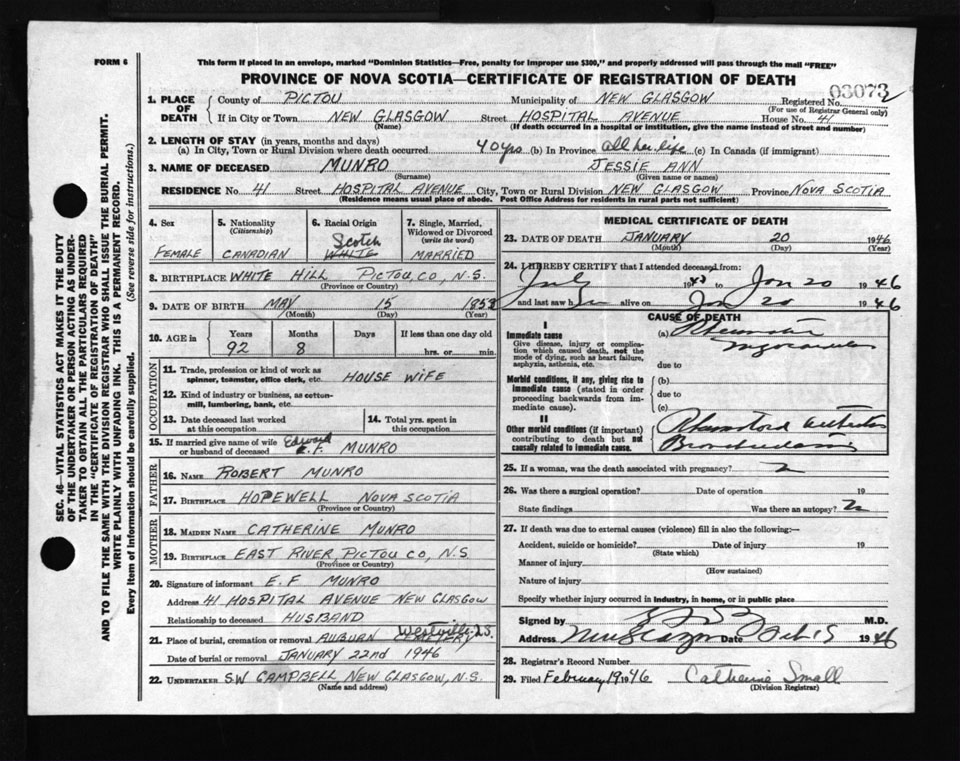 FORM 6
This form if placed in an envelope, marked "Dominion Statistics—Free, penalty for improper use $300," and properly addressed will pass through the mail "FREE"
PROVINCE OF NOVA SCOTIA—CERTIFICATE OF REGISTRATION OF DEATH
03073
1. PLACE OF DEATH
County of PICTOU Municipality of NEW GLASGOW Registered No.
(For use of Registrar General only)
If in City or Town NEW GLASGOW Street HOSPITAL AVENUE House No. 41
(Name) (If death occurred in a hospital or institution, give the name instead of street and number)
2. LENGTH OF STAY (in years, months and days)
(a) In City, Town or Rural Division where death occurred 40 yrs (b) In Province all her life (c) In Canada (if immigrant)
3. NAME OF DECEASED MUNRO JESSIE ANN
(Surname) (Given name or names)
RESIDENCE No. 41 Street HOSPITAL AVENUE City, Town or Rural Division NEW GLASGOW Province NOVA SCOTIA
(Residence means usual place of abode. Post Office Address for residents in rural parts not sufficient)
4. Sex
FEMALE
5. Nationality
(Citizenship)
CANADIAN
6. Racial Origin
Scotch
WHITE
7. Single, Married, Widowed or Divorced
(write the word)
MARRIED
8. BIRTHPLACE WHITE HILL PICTOU CO, N.S.
(Province or Country)
9. DATE OF BIRTH MAY 15 1853
(Month) (Day) (Year)
10. AGE in
Years Months Days If less than one day old
92 8 hrs. or min.
OCCUPATION
11. Trade, profession or kind of work as spinner, teamster, office clerk, etc. HOUSE WIFE
12. Kind of industry or business, as cotton-mill, lumbering, bank, etc.
13. Date deceased last worked at this occupation
14. Total yrs. spent in this occupation
15. If married give name of wife or husband of deceased Edward E.F. MUNRO
FATHER
16. NAME ROBERT MUNRO
17. BIRTHPLACE HOPEWELL NOVA SCOTIA
(Province or Country)
MOTHER
18. MAIDEN NAME CATHERINE MUNRO
19. BIRTHPLACE EAST RIVER, PICTOU CO, N.S
(Province or Country)
20. Signature of informant E. F MUNRO
Address 41 HOSPITAL AVENUE NEW GLASGOW
Relationship to deceased HUSBAND
21. Place of burial, cremation or removal AUBURN CEMETERY Westville
Date of burial or removal JANUARY 22nd 1946
22. UNDERTAKER S.W CAMPBELL, NEW GLASGOW, N.S.
(Name and address)
MEDICAL CERTIFICATE OF DEATH
23. DATE OF DEATH JANUARY 20 1946
(Month) (Day) (Year)
24. I HEREBY CERTIFY that I attended deceased from:
July 1943 to Jan 20 1946
and last saw her alive on Jan 20 1946
CAUSE OF DEATH
I
Immediate cause
Give disease, injury or complication which caused death, not the mode of dying, such as heart failure, asphyxia, asthenia, etc.
(a) Rheumatic
due to
Morbid conditions, if any, giving rise to immediate cause (stated in order proceeding backwards from immediate cause).
(b)
due to
(c)
II
Other morbid conditions (if important) contributing to death but not causally related to immediate cause.
25. If a woman, was the death associated with pregnancy?
26. Was there a surgical operation? Date of operation 19
State findings Was there an autopsy?
27. If death was due to external causes (violence) fill in also the following:—
Accident, suicide or homicide? Date of injury 19
(State which)
Manner of injury
(How sustained)
Nature of injury
Specify whether injury occurred in industry, in home, or in public place
Signed by M.D.
Address New Glasgow Date Feb 15 1946
28. Registrar's Record Number
29. Filed February 19 1946 Catherine Small
(Division Registrar)
SEC. 46—VITAL STATISTICS ACT MAKES IT THE DUTY
OF THE UNDERTAKER OR PERSON ACTING AS UNDER-
TAKER TO OBTAIN ALL THE PARTICULARS REQUIRED
IN THE "CERTIFICATE OF REGISTRATION OF DEATH"
AND TO FILE THE SAME WITH THE DIVISION REGISTRAR WHO SHALL ISSUE THE BURIAL PERMIT.
WRITE PLAINLY WITH UNFADING INK. THIS IS A PERMANENT RECORD.
Every item of information should be carefully supplied. (See reverse side for instructions.)